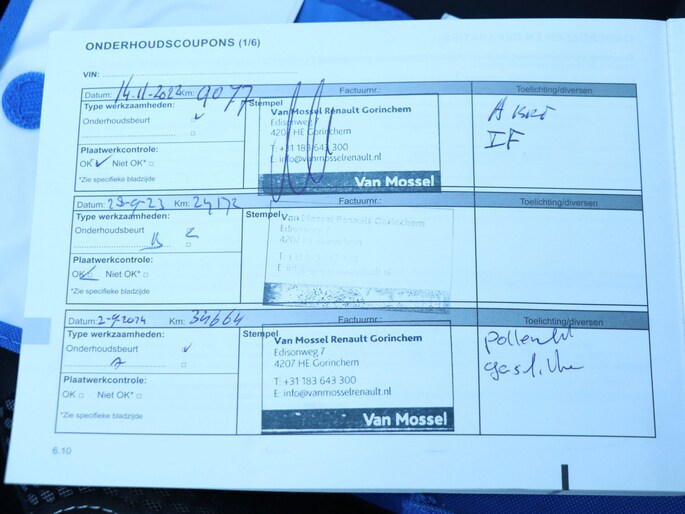 ONDERHOUDSCOUPONS (1/6)
VIN: ......
Datum: 14-11-2022 Km: 9077 Factuurnr.: Toelichting/diversen
Type werkzaamheden: Stempel
Onderhoudsbeurt ✓
Plaatwerkcontrole:
OK ✓ Niet OK* □
*Zie specifieke bladzijde
Van Mossel Renault Gorinchem
Edisonweg 7
4207 HE Gorinchem
T: +31 183 643 300
E: info@vanmosselrenault.nl
Van Mossel
A
IF
Datum: Km: 24172 Factuurnr.: Toelichting/diversen
Type werkzaamheden: Stempel
Onderhoudsbeurt
B □
Plaatwerkcontrole:
OK ✓ Niet OK* □
*Zie specifieke bladzijde
Van Mossel Renault Gorinchem
Edisonweg 7
4207 HE Gorinchem
T: +31 183 643 300
Datum: 2-9-2024 Km: 34664 Factuurnr.: Toelichting/diversen
Type werkzaamheden: Stempel
Onderhoudsbeurt ✓
A □
Plaatwerkcontrole:
OK □ Niet OK* □
*Zie specifieke bladzijde
Van Mossel Renault Gorinchem
Edisonweg 7
4207 HE Gorinchem
T: +31 183 643 300
E: info@vanmosselrenault.nl
Van Mossel
6.10